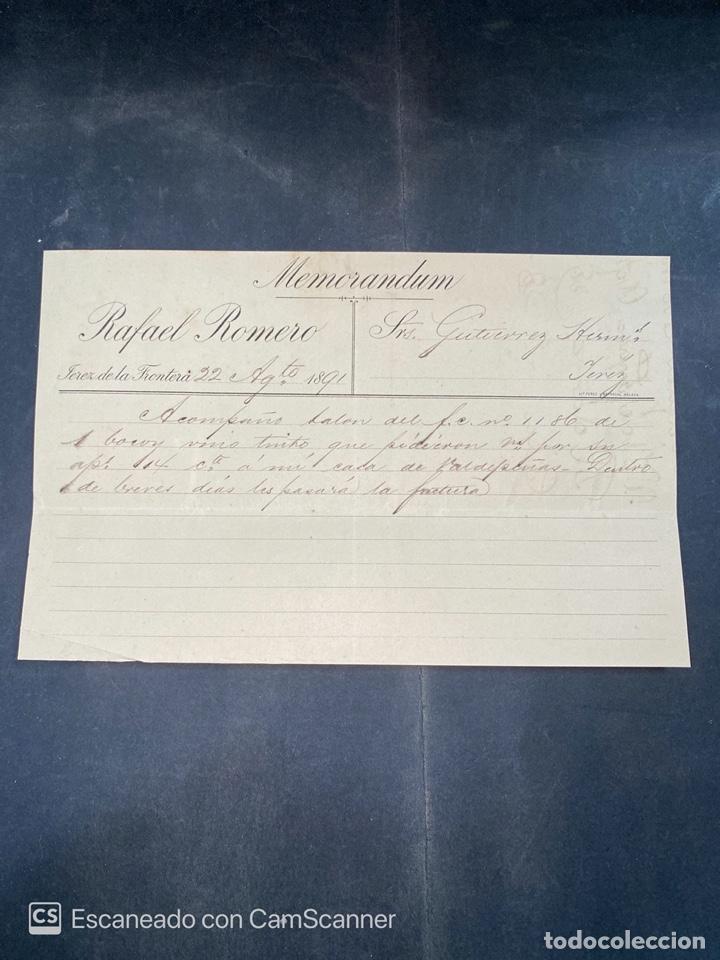 Memorandum
Rafael Romero
Srs. Gutierrez Herms
Jerez de la Frontera 22 Agto 1891
Jerez
Acompaño talon del f.c. no. 1186 de
1 bocoy vino tinto que pidieron Vs por su
apl 14 cte á mi casa de Valdepeñas. Dentro
de breves dias les pasará la factura
CS Escaneado con CamScanner
todocoleccion